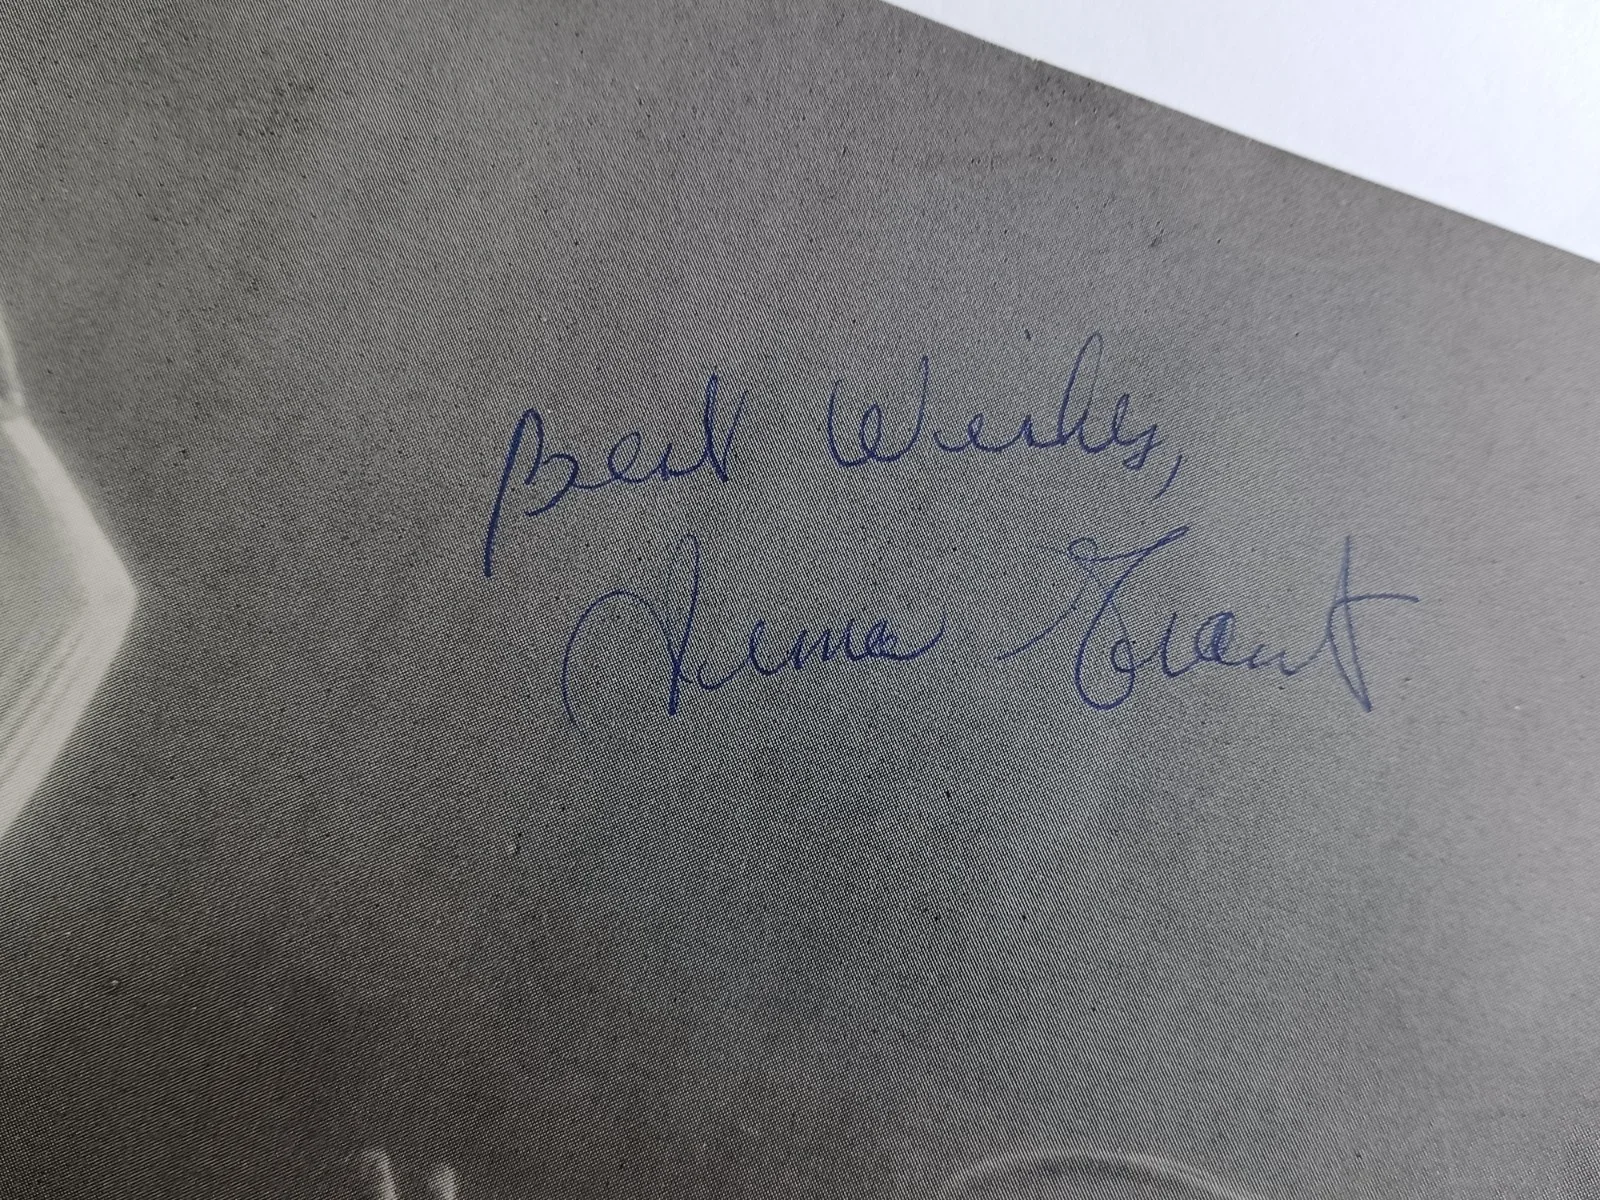 Best Wishes,
Grant